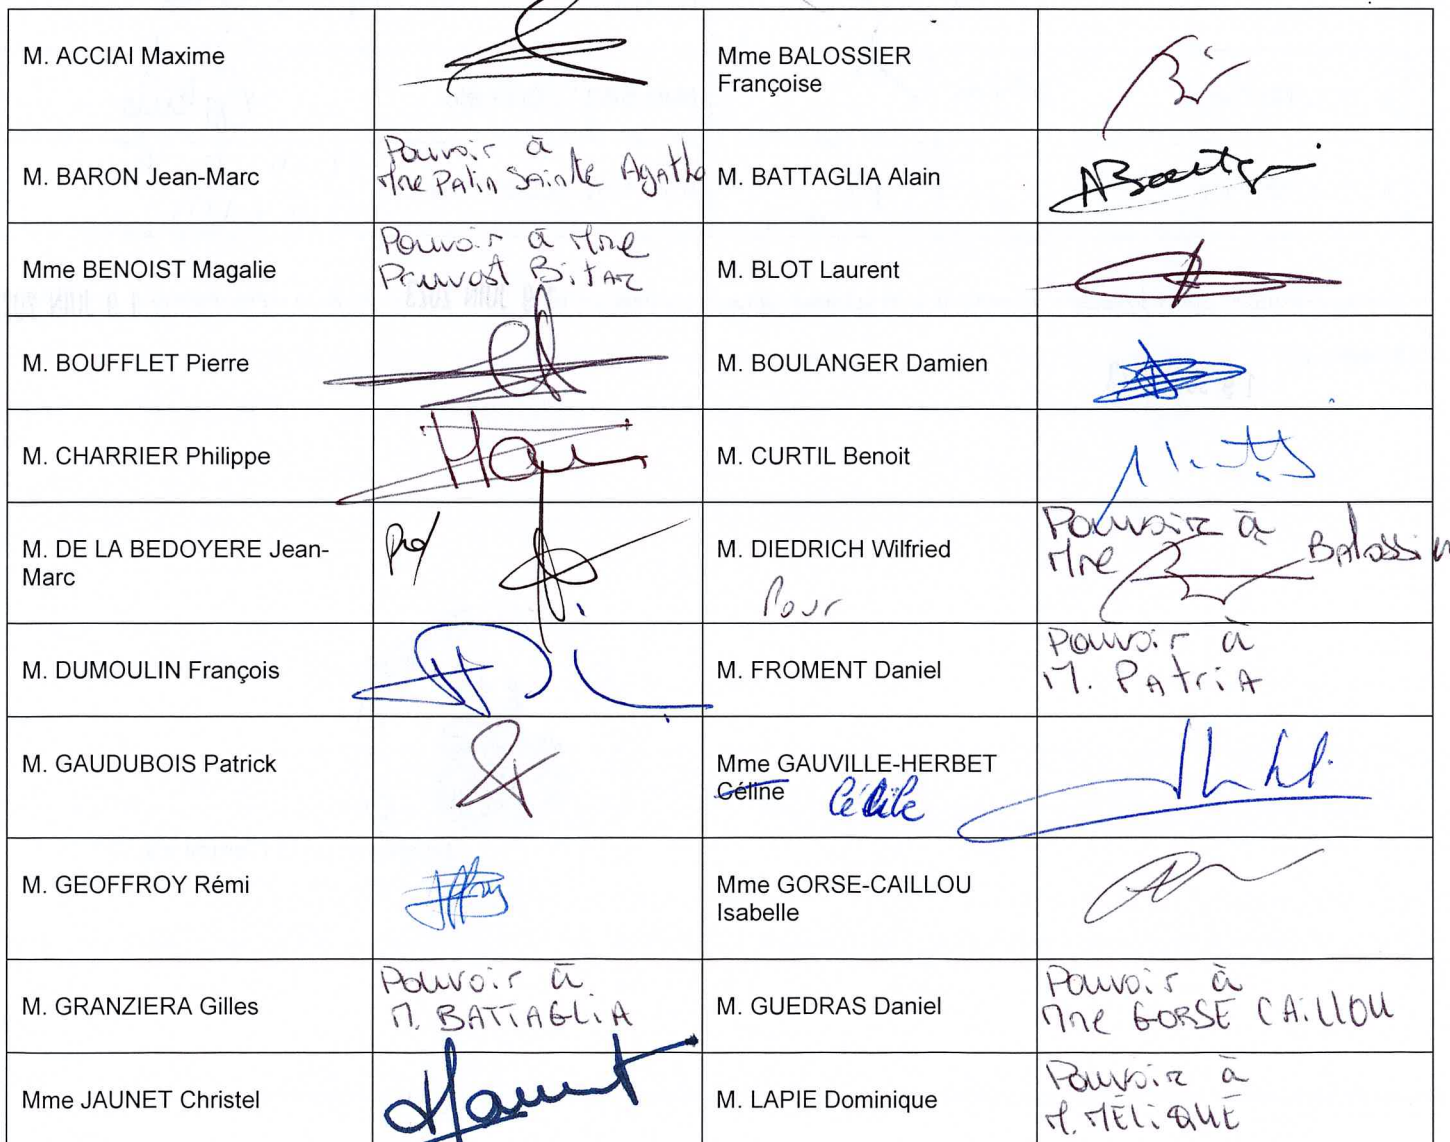 M. ACCIAI Maxime
Mme BALOSSIER
Françoise
M. BARON Jean-Marc
Pouvoir à
Mme Patin Sainte Agathe
M. BATTAGLIA Alain
Mme BENOIST Magalie
Pouvoir à Mme
Pruvost Bitar
M. BLOT Laurent
M. BOUFFLET Pierre
M. BOULANGER Damien
M. CHARRIER Philippe
M. CURTIL Benoit
M. DE LA BEDOYERE Jean-
Marc
M. DIEDRICH Wilfried
Pour
Pouvoir à
Mme Balossier
M. DUMOULIN François
M. FROMENT Daniel
Pouvoir à
M. PAtriA
M. GAUDUBOIS Patrick
Mme GAUVILLE-HERBET
Céline Cécile
M. GEOFFROY Rémi
Mme GORSE-CAILLOU
Isabelle
M. GRANZIERA Gilles
Pouvoir à
M. BATTAGLiA
M. GUEDRAS Daniel
Pouvoir à
Mme GORSE CAiLLOU
Mme JAUNET Christel
M. LAPIE Dominique
Pouvoir à
M. MÉLiQUÉ